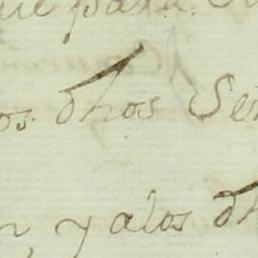 ue para
os dhos Se
n, y alos dh